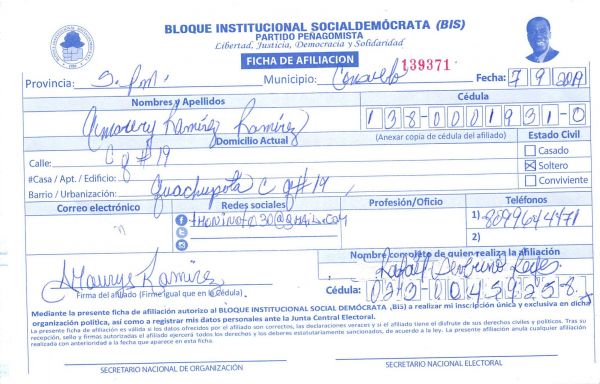 BLOQUE INSTITUCIONAL SOCIALDEMÓCRATA (BIS)
PARTIDO PEÑAGOMISTA
Libertad, Justicia, Democracia y Solidaridad
FICHA DE AFILIACION
139371
Provincia: S.P.M. Municipio: Consuelo Fecha: 7/9/2019
Nombres y Apellidos Cédula
Ramírez Ramírez 138-0001931-0
Domicilio Actual (Anexar copia de cédula del afiliado) Estado Civil
Calle: C g # 19 Casado
#Casa / Apt. / Edificio: Soltero
Barrio / Urbanización: Guachupita C g # 19, Conviviente
Correo electrónico Redes sociales Profesión/Oficio Teléfonos
1) 8099644471
2)
Nombre completo de quien realiza la afiliación
Rafael Reyes
Ramírez
Firma del afiliado (Firme igual que en la Cédula) Cédula: 023-0045925-8
Mediante la presente ficha de afiliación autorizo al BLOQUE INSTITUCIONAL SOCIAL DEMÓCRATA (BIS) a realizar mi inscripción única y exclusiva en dicha
organización política, así como a registrar mis datos personales ante la Junta Central Electoral.
La presente ficha de afiliación es válida si los datos ofrecidos por el afiliado son correctos, las declaraciones veraces y si el afiliado tiene el disfrute de sus derechos civiles y políticos. Tras su
recepción, sello y firmas autorizadas el afiliado ejercerá todos los derechos y los deberes estatutariamente sancionados, de acuerdo a la ley. La presente afiliación anula cualquier afiliación
realizada con anterioridad a la fecha que aparece en esta ficha.
SECRETARIO NACIONAL DE ORGANIZACIÓN SECRETARIO NACIONAL ELECTORAL